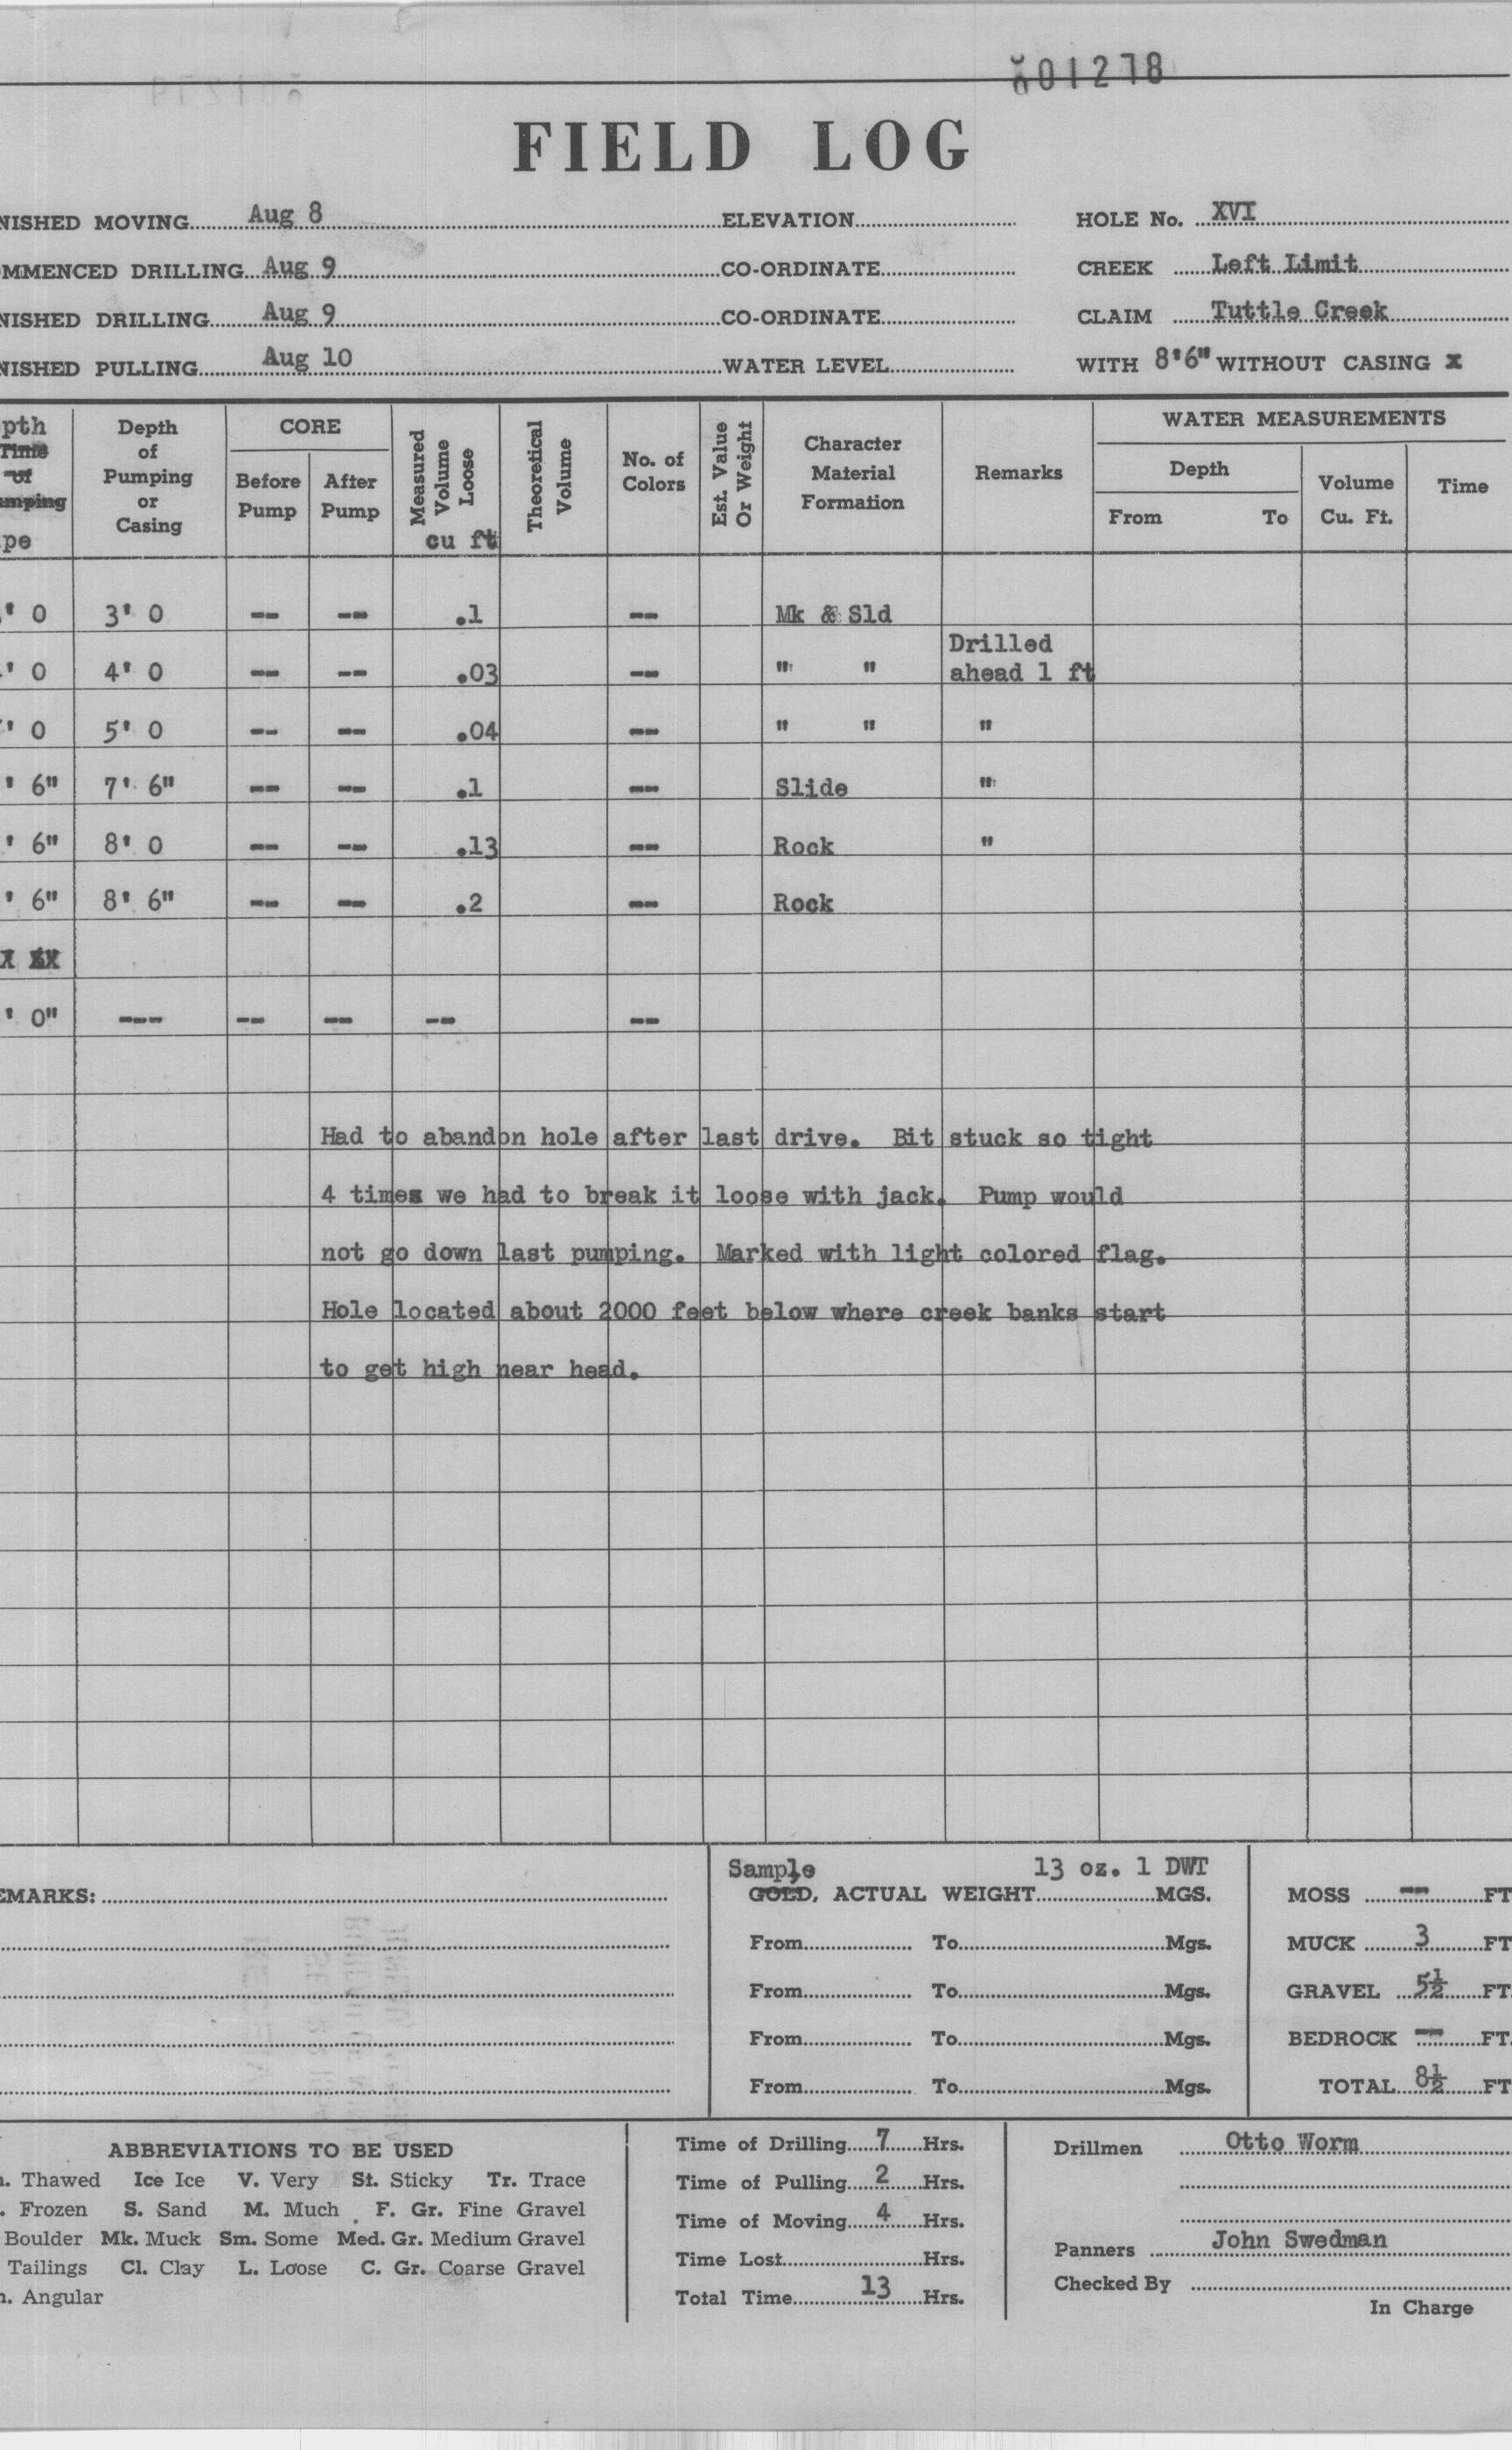 01278
FIELD LOG
NISHED MOVING Aug 8 ELEVATION HOLE No. XVI
MMENCED DRILLING Aug 9 CO-ORDINATE CREEK Left Limit
NISHED DRILLING Aug 9 CO-ORDINATE CLAIM Tuttle Creek
NISHED PULLING Aug 10 WATER LEVEL WITH 8'6" WITHOUT CASING x
pth Time of umping pe
Depth of Pumping or Casing
CORE
Before Pump
After Pump
Measured Volume Loose cu ft
Theoretical Volume
No. of Colors
Est. Value Or Weight
Character Material Formation
Remarks
WATER MEASUREMENTS
Depth
From To
Volume Cu. Ft.
Time
' 0 3' 0 -- -- .1 -- Mk & Sld
' 0 4' 0 -- -- .03 -- " " Drilled ahead 1 ft
' 0 5' 0 -- -- .04 -- " " "
' 6" 7' 6" -- -- .1 -- Slide "
' 6" 8' 0 -- -- .13 -- Rock "
' 6" 8' 6" -- -- .2 -- Rock
' 0" --- -- -- -- --
Had to abandon hole after last drive. Bit stuck so tight
4 times we had to break it loose with jack. Pump would
not go down last pumping. Marked with light colored flag.
Hole located about 2000 feet below where creek banks start
to get high near head.
EMARKS:
Sample 13 oz. 1 DWT
GOLD, ACTUAL WEIGHT MGS.
From To Mgs.
From To Mgs.
From To Mgs.
From To Mgs.
MOSS -- FT
MUCK 3 FT
GRAVEL 5½ FT.
BEDROCK -- FT.
TOTAL 8½ FT
ABBREVIATIONS TO BE USED
. Thawed Ice Ice V. Very St. Sticky Tr. Trace
. Frozen S. Sand M. Much F. Gr. Fine Gravel
Boulder Mk. Muck Sm. Some Med. Gr. Medium Gravel
Tailings Cl. Clay L. Loose C. Gr. Coarse Gravel
. Angular
Time of Drilling 7 Hrs.
Time of Pulling 2 Hrs.
Time of Moving 4 Hrs.
Time Lost Hrs.
Total Time 13 Hrs.
Drillmen Otto Worm
Panners John Swedman
Checked By
In Charge